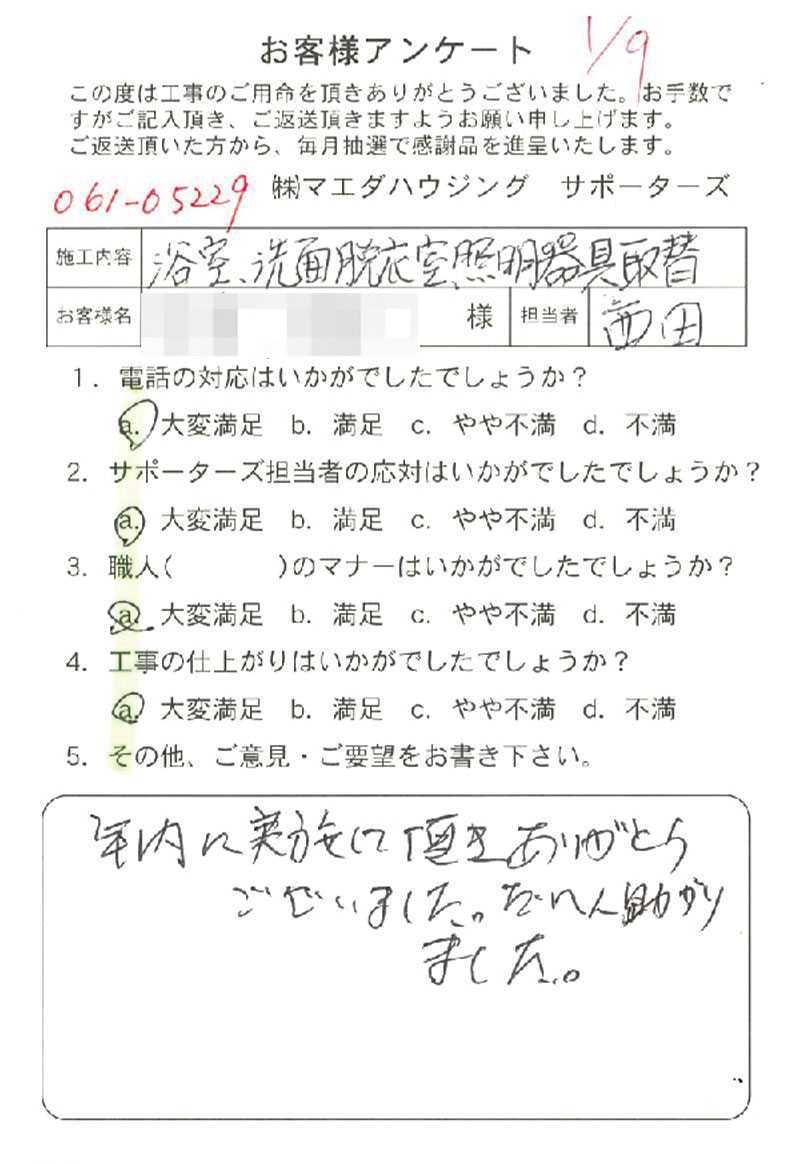 お客様アンケート
1/9
この度は工事のご用命を頂きありがとうございました。お手数で
すがご記入頂き、ご返送頂きますようお願い申し上げます。
ご返送頂いた方から、毎月抽選で感謝品を進呈いたします。
061-05229
㈱マエダハウジング サポーターズ
施工内容 浴室、洗面脱衣室、照明器具取替
お客様名 様 担当者 西田
1. 電話の対応はいかがでしたでしょうか？
a. 大変満足 b. 満足 c. やや不満 d. 不満
2. サポーターズ担当者の応対はいかがでしたでしょうか？
a. 大変満足 b. 満足 c. やや不満 d. 不満
3. 職人( )のマナーはいかがでしたでしょうか？
a. 大変満足 b. 満足 c. やや不満 d. 不満
4. 工事の仕上がりはいかがでしたでしょうか？
a. 大変満足 b. 満足 c. やや不満 d. 不満
5. その他、ご意見・ご要望をお書き下さい。
年内に実施して頂きありがとう
ございました。だいへん助かり
ました。